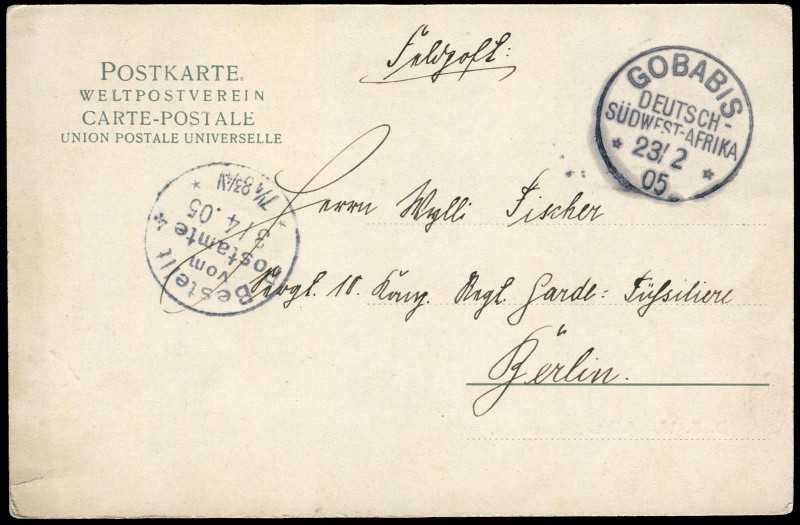 Feldpost.
POSTKARTE.
WELTPOSTVEREIN
CARTE-POSTALE
UNION POSTALE UNIVERSELLE
GOBABIS
DEUTSCH-
SÜDWEST-AFRIKA
* 23/2 *
05
Herrn Willi Fischer
10. Komp. Regt. Garde-Füsiliere
Berlin.
Bestellt
vom
Postamte 4
3/4.05